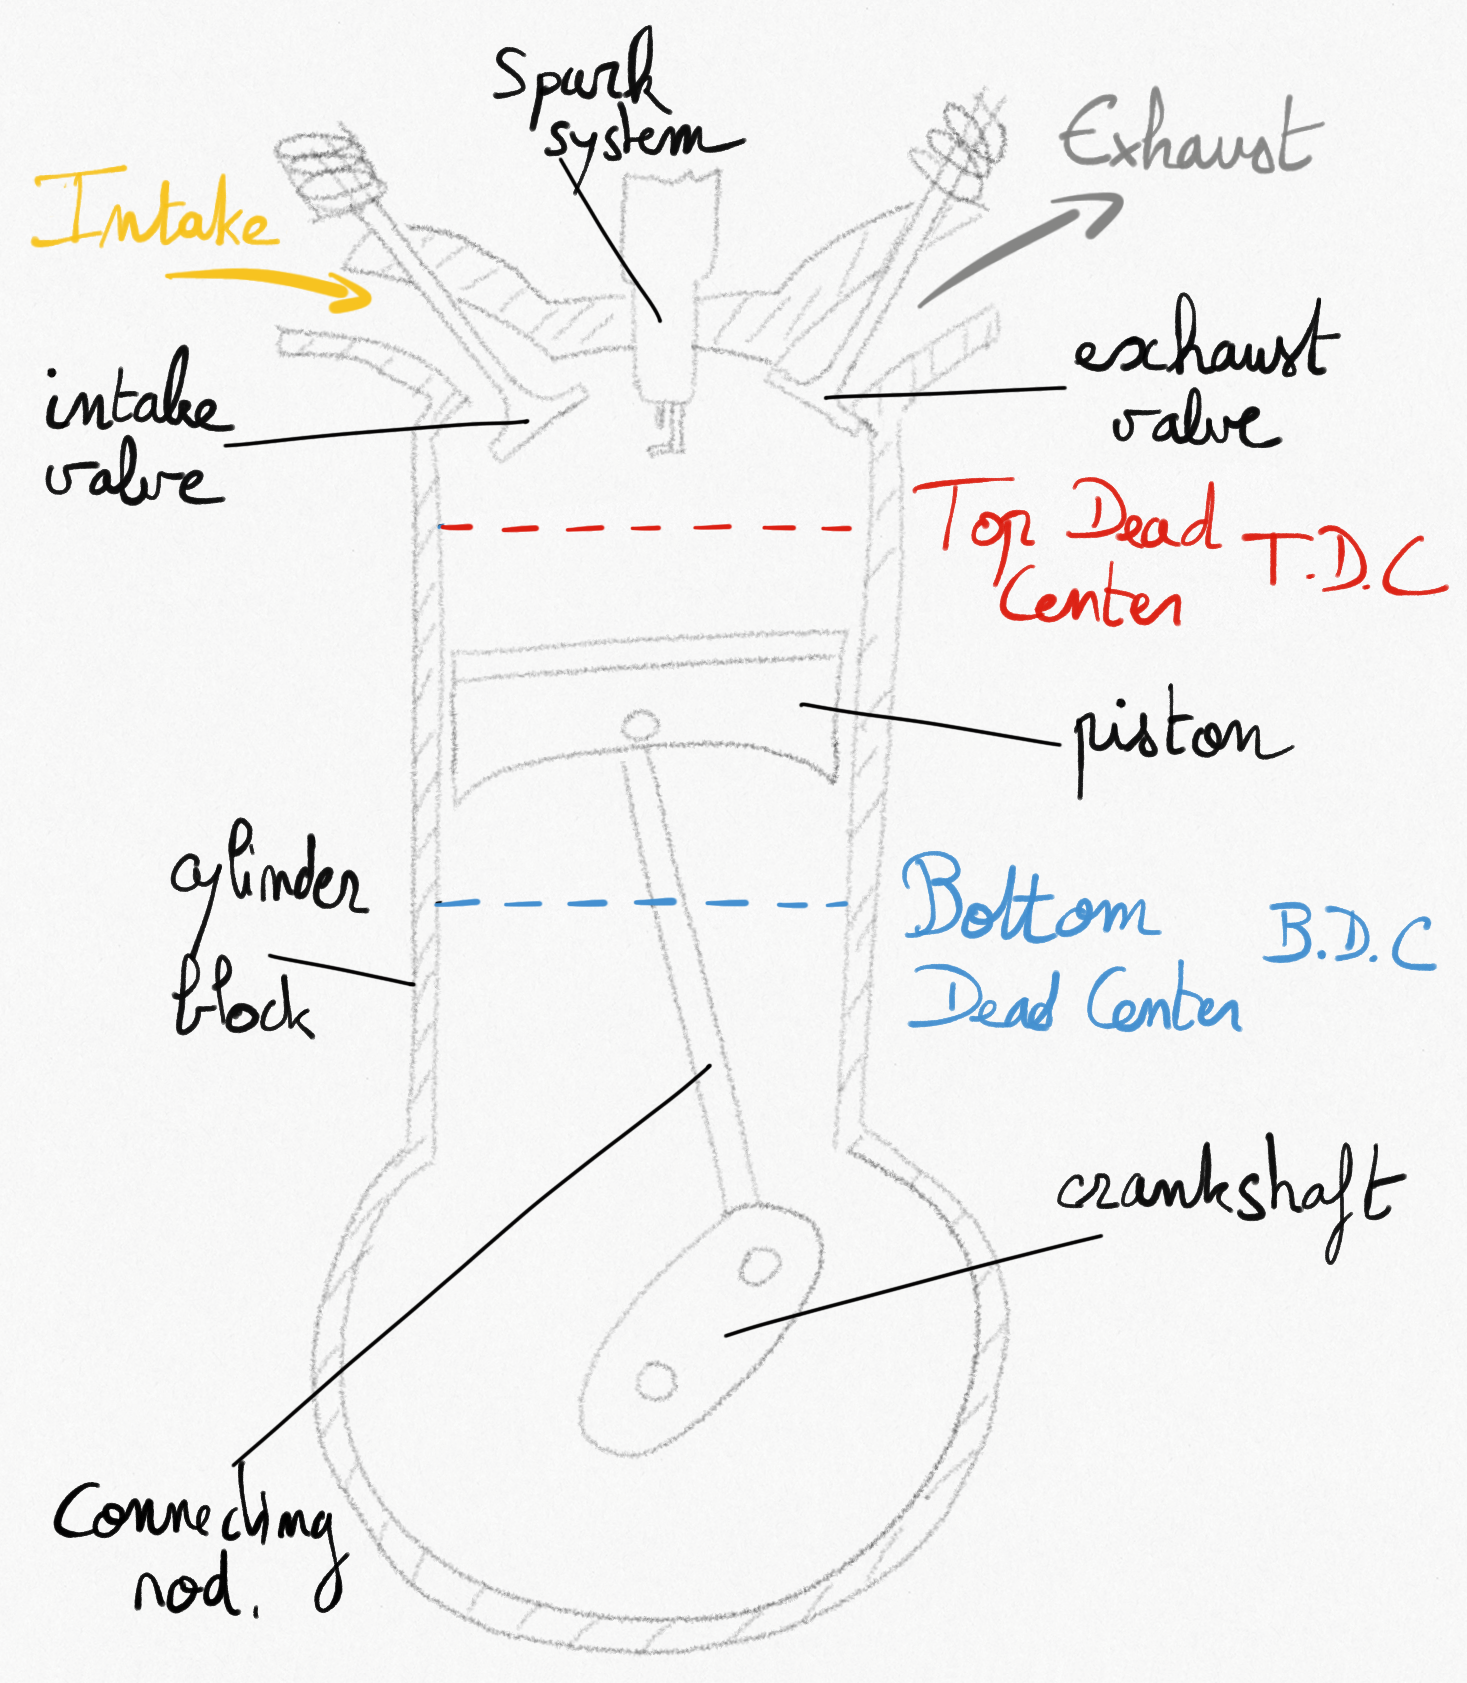 Spark
system
Intake
Exhaust
intake
valve
exhaust
valve
Top Dead
Center
T.D.C
piston
cylinder
block
Bottom
Dead Center
B.D.C
crankshaft
Connecting
rod.